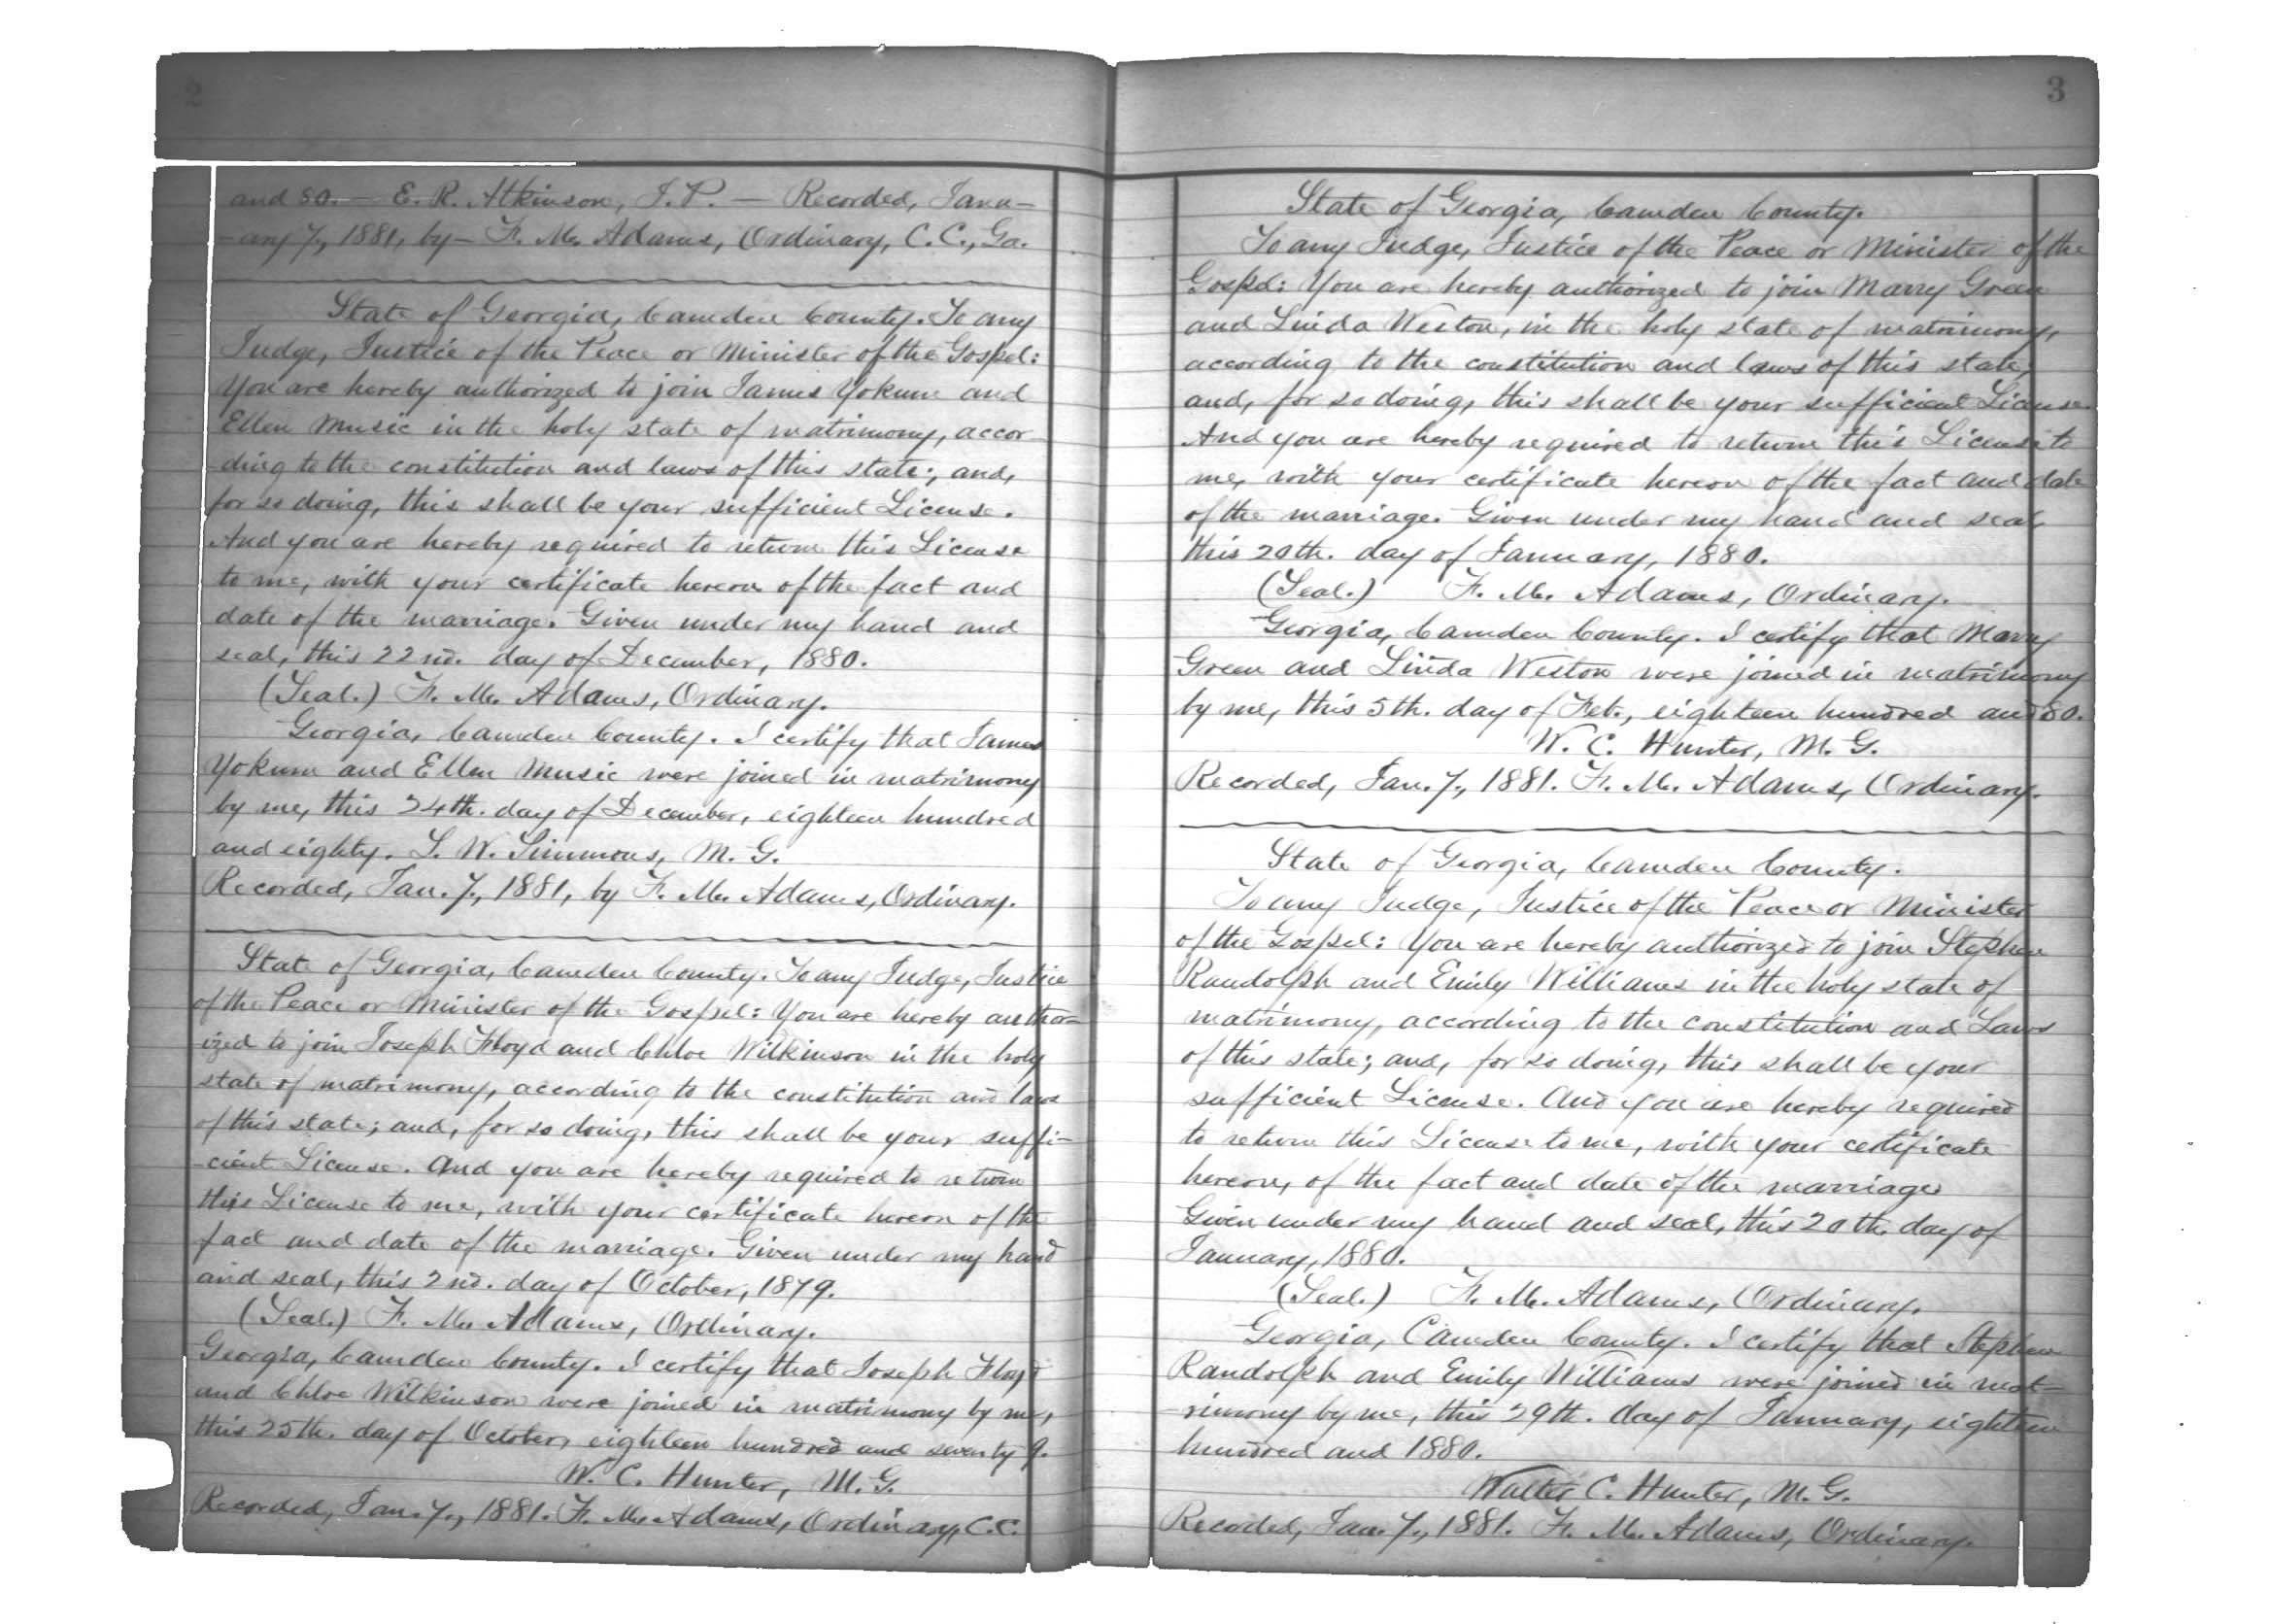 2
and 80. — E. R. Atkinson, J. P. — Recorded, Janu-
-ary 7., 1881, by — F. M. Adams, Ordinary, C. C., Ga.
State of Georgia, Camden County. To any
Judge, Justice of the Peace or Minister of the Gospel:
You are hereby authorized to join James Yokum and
Ellen Music in the holy state of matrimony, accor-
-ding to the constitution and laws of this state; and,
for so doing, this shall be your sufficient License.
And you are hereby required to return this License
to me, with your certificate hereon of the fact and
date of the marriage. Given under my hand and
seal, this 22nd. day of December, 1880.
(Seal.) F. M. Adams, Ordinary.
Georgia, Camden County. I certify that James
Yokum and Ellen Music were joined in matrimony
by me, this 24th. day of December, eighteen hundred
and eighty. S. W. Simmons, M. G.
Recorded, Jan. 7., 1881, by F. M. Adams, Ordinary.
State of Georgia, Camden County. To any Judge, Justice
of the Peace or Minister of the Gospel: You are hereby author-
ized to join Joseph Floyd and Chloe Wilkinson in the holy
state of matrimony, according to the constitution and laws
of this state; and, for so doing, this shall be your suffi-
-cient License. And you are hereby required to return
this License to me, with your certificate hereon of the
fact and date of the marriage. Given under my hand
and seal, this 2nd. day of October, 1879.
(Seal.) F. M. Adams, Ordinary.
Georgia, Camden County. I certify that Joseph Floyd
and Chloe Wilkinson were joined in matrimony by me,
this 25th. day of October, eighteen hundred and seventy 9.
W. C. Hunter, M. G.
Recorded, Jan. 7., 1881. F. M. Adams, Ordinary, C. C.
3
State of Georgia, Camden County.
To any Judge, Justice of the Peace or Minister of the
Gospel: You are hereby authorized to join Marry Green
and Linda Weston, in the holy state of matrimony,
according to the constitution and laws of this state;
and, for so doing, this shall be your sufficient License.
And you are hereby required to return this License to
me, with your certificate hereon of the fact and date
of the marriage. Given under my hand and seal
this 20th. day of January, 1880.
(Seal.) F. M. Adams, Ordinary.
Georgia, Camden County. I certify that Marry
Green and Linda Weston were joined in matrimony
by me, this 5th. day of Feb., eighteen hundred and 80.
W. C. Hunter, M. G.
Recorded, Jan. 7., 1881. F. M. Adams, Ordinary.
State of Georgia, Camden County.
To any Judge, Justice of the Peace or Minister
of the Gospel: You are hereby authorized to join Stephen
Randolph and Emily Williams in the holy state of
matrimony, according to the constitution and Laws
of this state; and, for so doing, this shall be your
sufficient License. And you are hereby required
to return this License to me, with your certificate
hereon, of the fact and date of the marriage
Given under my hand and seal, this 20th. day of
January, 1880.
(Seal.) F. M. Adams, Ordinary.
Georgia, Camden County. I certify that Stephen
Randolph and Emily Williams were joined in mat-
-rimony by me, this 29th. day of January, eighteen
hundred and 1880.
Walter C. Hunter, M. G.
Recorded, Jan. 7., 1881. F. M. Adams, Ordinary.